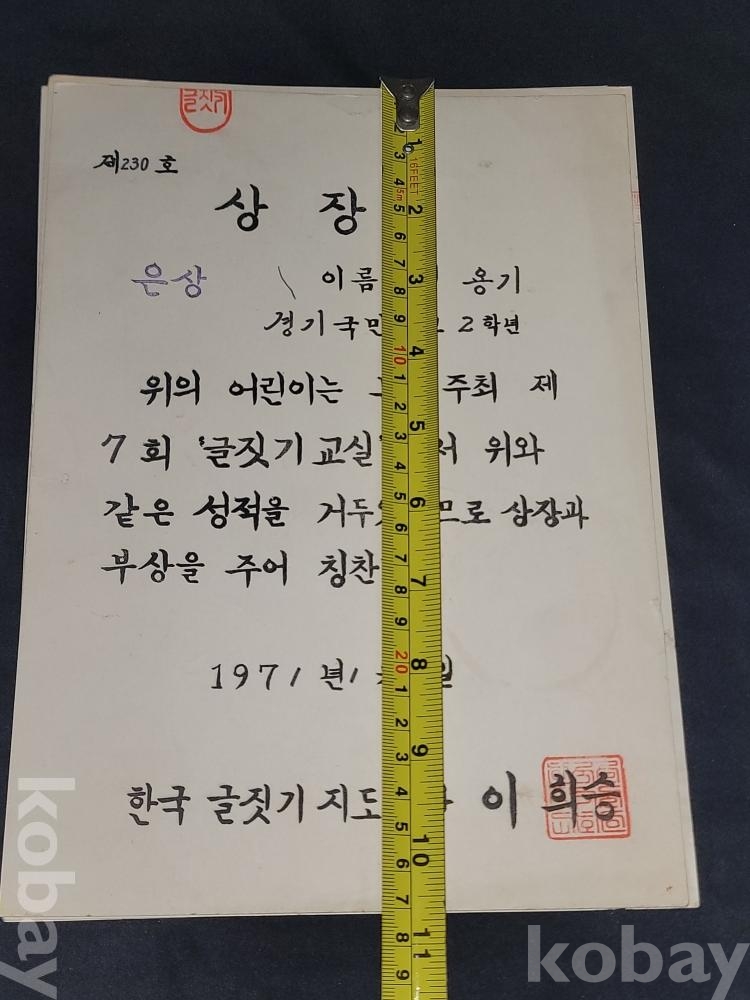 글짓기
제230호
상 장
은상 이름 용기
경기국민 2학년
위의 어린이는 주최 제
7회 '글짓기 교실' 서 위와
같은 성적을 거두 므로 상장과
부상을 주어 칭찬
1971년
한국 글짓기 지도 이희승
16FEET
5m
kobay
kobay